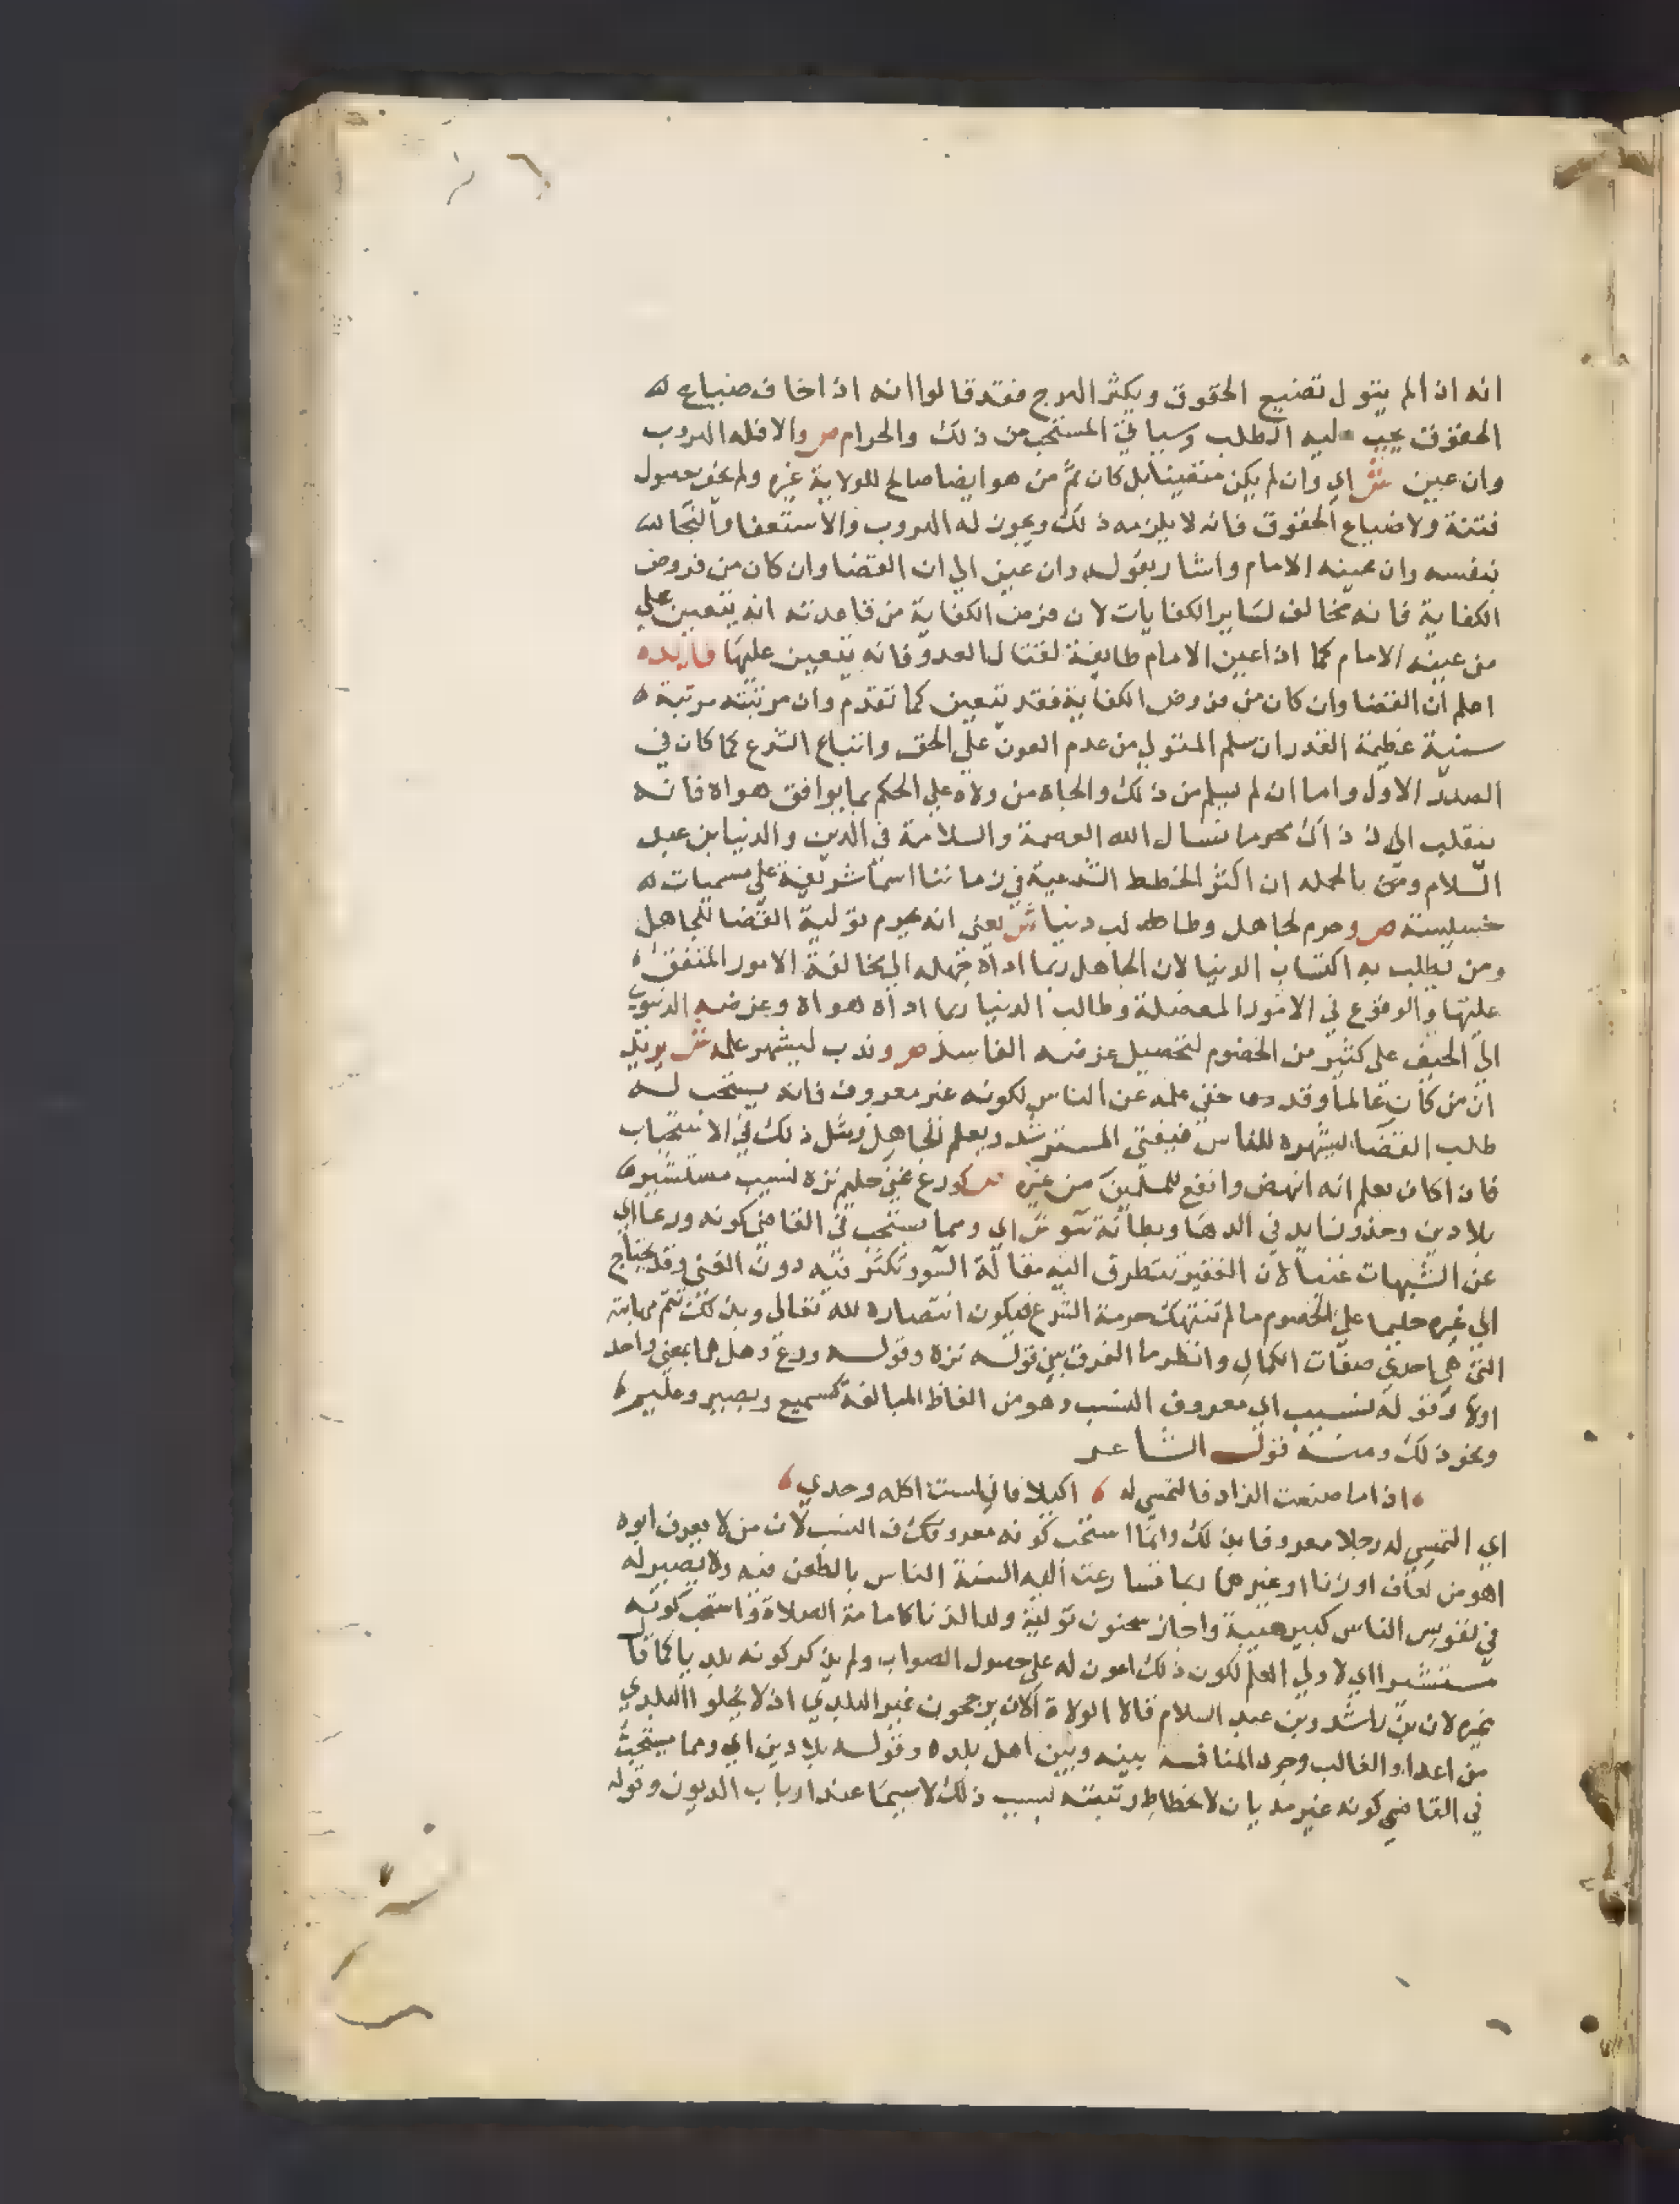 انه اذا لم يتول تضيع الحقوق ويكثر الهرج فقد قالوا انه اذا خاف ضياع
الحقوق يجب عليه الطلب وسياتي المستحب من ذلك والحرام ص والا فله الهروب
وان عين ش اي وان لم يكن متعينا بل كان ثم من هو ايضا صالح للولاية غيره ولم يخف حصول
فتنة ولا ضياع الحقوق فانه لا يلزمه ذلك ويجوز له الهروب والاستعفا والنجاة
بنفسه وان عينه الامام واشار بقوله وان عين الي ان القضا وان كان من فروض
الكفاية فانه مخالف لساير الكفايات لان فرض الكفاية من قاعدته انه يتعين علي
من عينه الامام كما اذا عين الامام طايفة لقتال العدو فانه يتعين عليها فايده
اعلم ان القضا وان كان من فروض الكفاية فقد يتعين كما تقدم وان مرتبته مرتبة
سنية عظيمة القدر ان سلم المتولي من عدم العون علي الحق واتباع الشرع كما كان في
الصدر الاول واما ان لم يسلم من ذلك والجاه من ولاه علي الحكم بما يوافق هواه فانه
ينقلب اذ ذاك محرما نسال الله العصمة والسلامة في الدين والدنيا بن عبد
السلام ومن بالجمله ان اكثر الخطط الشرعية في زماننا اسما شريفة علي مسميات
خسيسة ص وحرم لجاهل وطالب دنيا ش يعني انه يحرم تولية القضا للجاهل
ومن يطلب به اكتساب الدنيا لان الجاهل ربما اداه جهله الي مخالفة الامور المتفق
عليها والوقوع في الامور المعضلة وطالب الدنيا ربما اداه هواه وغرضه الدنيوي
الي الحيف علي كثير من الخصوم لتحصيل غرضه الفاسد ص وندب ليشهر علمه ش يريد
ان من كان عالما وقد خفي علمه عن الناس لكونه غير معروف فانه يستحب له
طلب القضا ليشهره للناس فيفتي المسترشد ويعلم الجاهل ومثل ذلك في الاستحباب
فان اكان يعلم انه انهض وانفع للمسلمين من غيره ص كورع غني حليم نزه نسيب مستشير
بلا دين وحد وزايد في الدها وبطانة سو ش اي ومما يستحب في القاضي كونه ورعا اي
عن الشبهات غنيا لان الفقير يتطرق اليه مقالة السو وتكثر فيه دون الغني وقد يحتاج
الي غيره حليما علي الخصوم ما لم تنتهك حرمة الشرع فيكون انتصاره لله تعالي وبذلك تتم مهابته
التي هي احدي صفات الكمال وانظر ما الفرق بين قوله نزه وقوله ورع وهل هما بمعني واحد
اولا وقوله نسيب اي معروف النسب وهو من الفاظ المبالغة كسميع وبصير وعليم
ونحو ذلك ومنه قول الشاعر
اذا ما صنعت الزاد فالتمسي له اكيلا فاني لست اكله وحدي
اي التمسي له رجلا معروفا بذلك وانما استحب كونه معروف النسب لان من لا يعرف ابوه
اهو من لعان او زنا او غيرهما ربما تسارعت اليه السنة الناس بالطعن فيه ولا يصير له
في نفوس الناس كبير هيبة واجاز سحنون تولية ولد الزنا كامامة الصلاة واستحب كونه
مستشيرا اي لاولي العلم لكون ذلك اعون له علي حصول الصواب ولم يذكر كونه بلديا كما قال
غيره لان بن راشد وبن عبد السلام قالا الولاة الان يرجحون غير البلدي اذ لا يخلوا البلدي
من اعدا والغالب وجود المنافسه بينه وبين اهل بلده وقوله بلا دين اي ومما يستحب
في القاضي كونه غير مديان لانحطاط رتبته بسبب ذلك لاسيما عند ارباب الديون وقوله